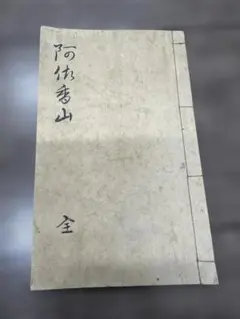 阿伽香山
全